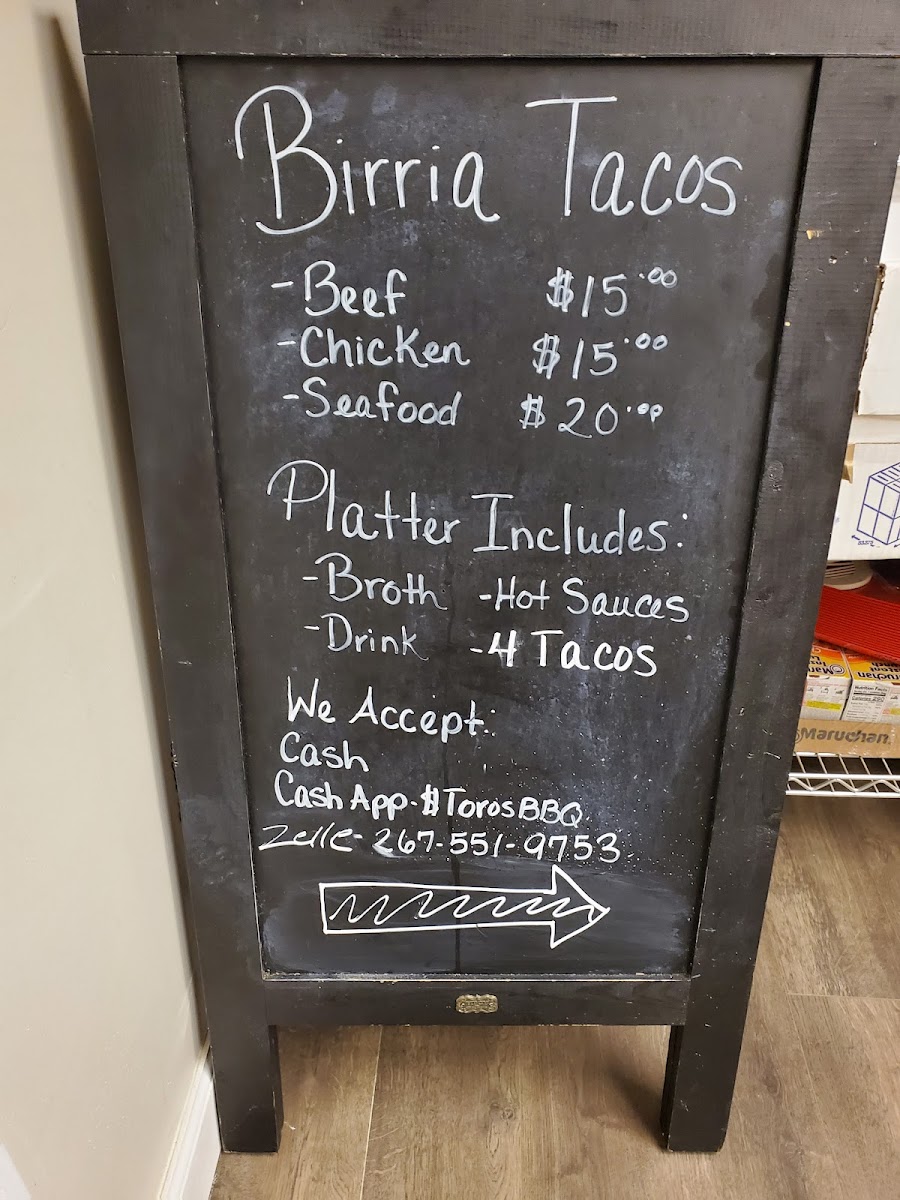 Birria Tacos
- Beef $15.00
- Chicken $15.00
- Seafood $20.00
Platter Includes:
- Broth - Hot Sauces
- Drink - 4 Tacos
We Accept:
Cash
Cash App - $TorosBBQ
Zelle - 267-551-9753
Maruchan
Maruchan
Maruchan